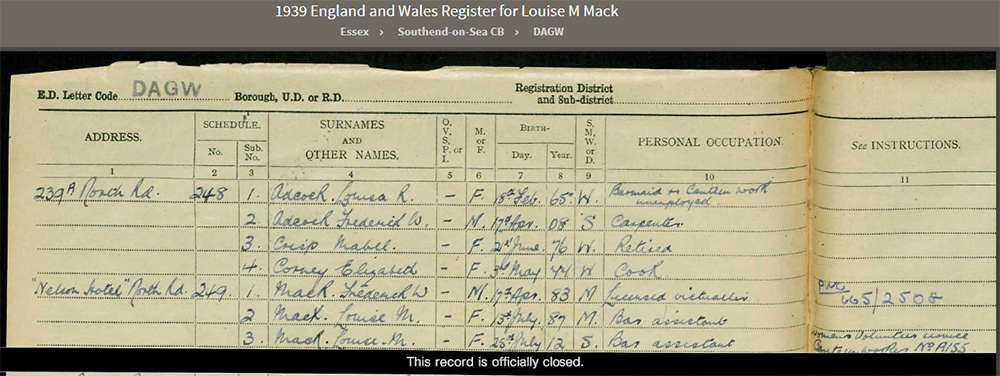 1939 England and Wales Register for Louise M Mack
Essex > Southend-on-Sea CB > DAGW
E.D. Letter Code DAGW Borough, U.D. or R.D. Registration District and Sub-district
ADDRESS. SCHEDULE. No. Sub. No. SURNAMES AND OTHER NAMES. O, V, S, P, or I. M. or F. BIRTH- Day. Year. S, M, W, or D. PERSONAL OCCUPATION. See INSTRUCTIONS.
1 2 3 4 5 6 7 8 9 10 11
239A North Rd. 248 1. Adcock. Louisa R. - F. 18th Feb. 65 W. Barmaid or Canteen work unemployed
2. Adcock Frederick W. - M. 17th Apr. 08 S Carpenter
3. Crisp Mabel. - F. 21st June 76 W. Retired
4. Elizabeth - F. 3rd May 74 W Cook
"Nelson Hotel" North Rd. 249. 1. Mack. Frederick W - M. 17th Apr. 83 M Licensed victualler 665/2508
2 Mack. Louise M. - F. 13th July. 87 M. Bar assistant
3. Mack. Louise. M. - F. 25th July 12 S. Bar assistant Womens Volunteer service
Canteen worker No A155
This record is officially closed.